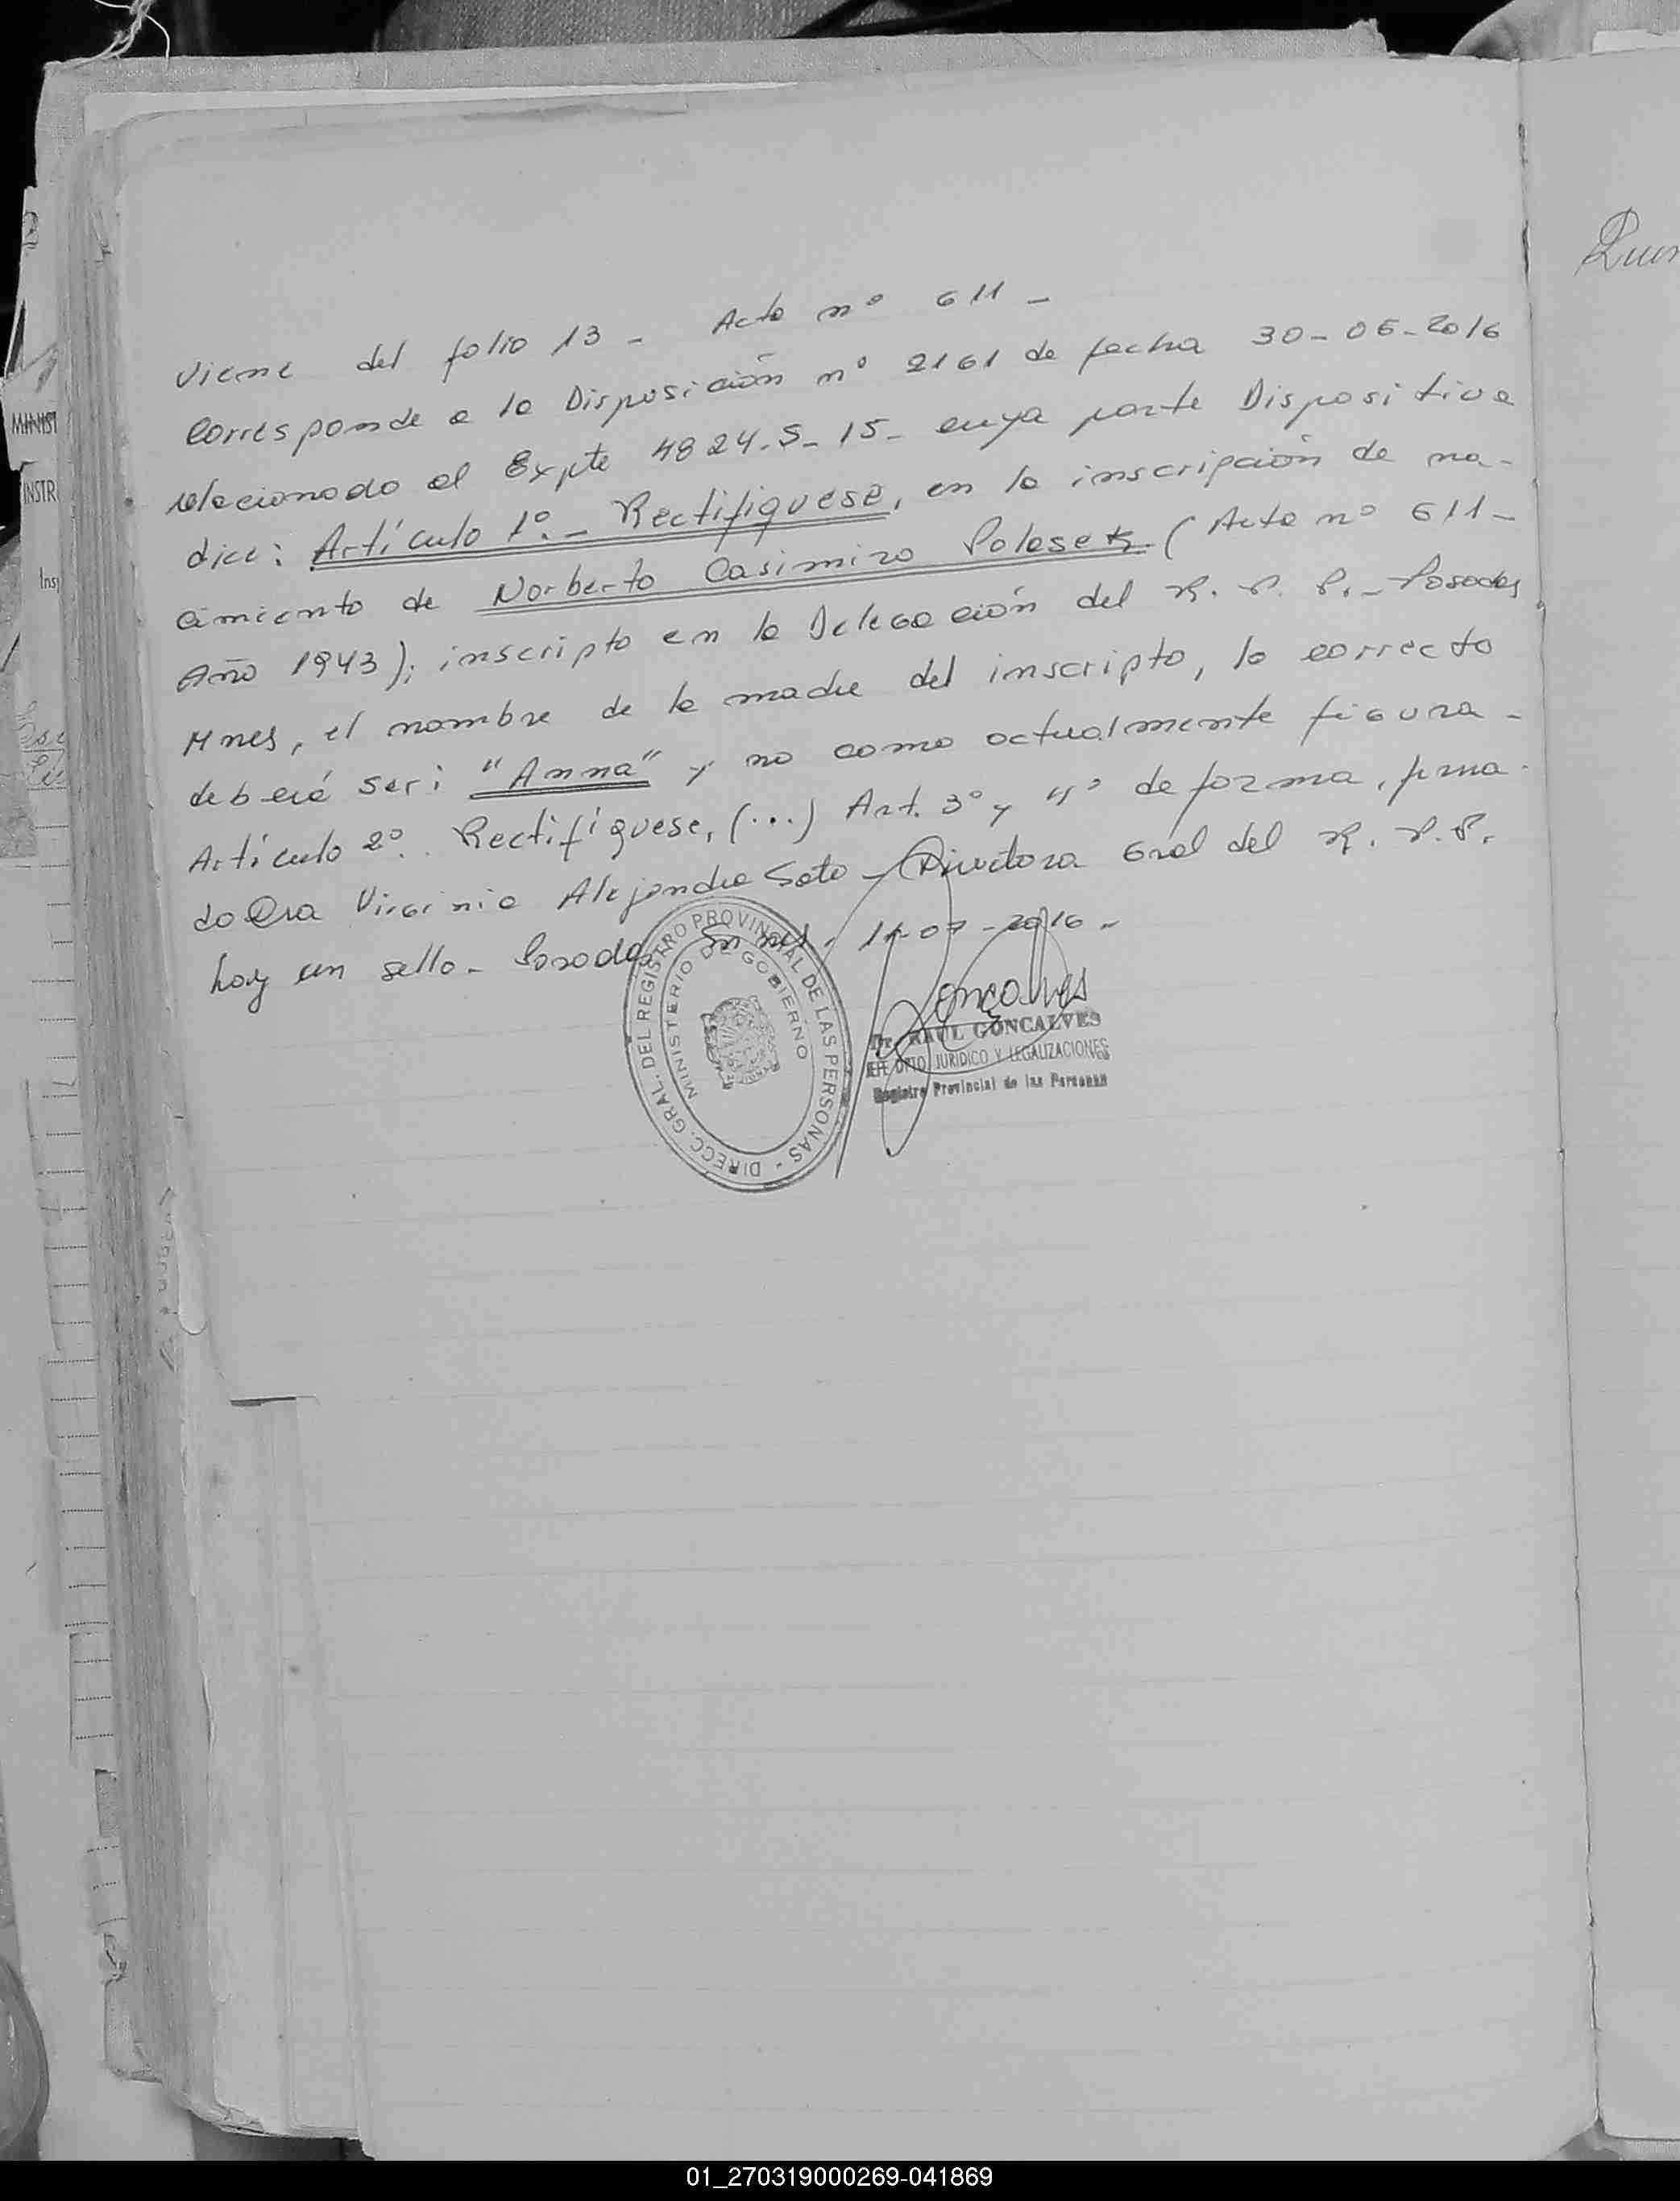 Viene del folio 13 - Acta nº 611 -
Corresponde a la Disposición nº 2161 de fecha 30-06-2016
relacionado al Expte 4824-S-15- cuya parte Dispositiva
dice: Artículo 1º.- Rectifiquese, en la inscripción de na-
cimiento de Norberto Casimiro Polasek (Acta nº 611-
Año 1943); inscripto en la Delegación del R.P.P.- Posadas
Mnes, el nombre de la madre del inscripto, lo correcto
deberá ser: "Anna" y no como actualmente figura-
Artículo 2º. Rectifíquese, (...) Art. 3º y 4º de forma, firma-
do Dra Virginia Alejandra Soto - Directora Gral del R.P.P.
hay un sello- Posadas, Mnes, 11-07-2016-
DIRECC. GRAL. DEL REGISTRO PROVINCIAL DE LAS PERSONAS -
MINISTERIO DE GOBIERNO
Goncalves
Dr. RAUL GONCALVES
JEFE DPTO JURIDICO Y LEGALIZACIONES
Registro Provincial de las Personas
MINIST
INSTR
Insp
01_270319000269-041869